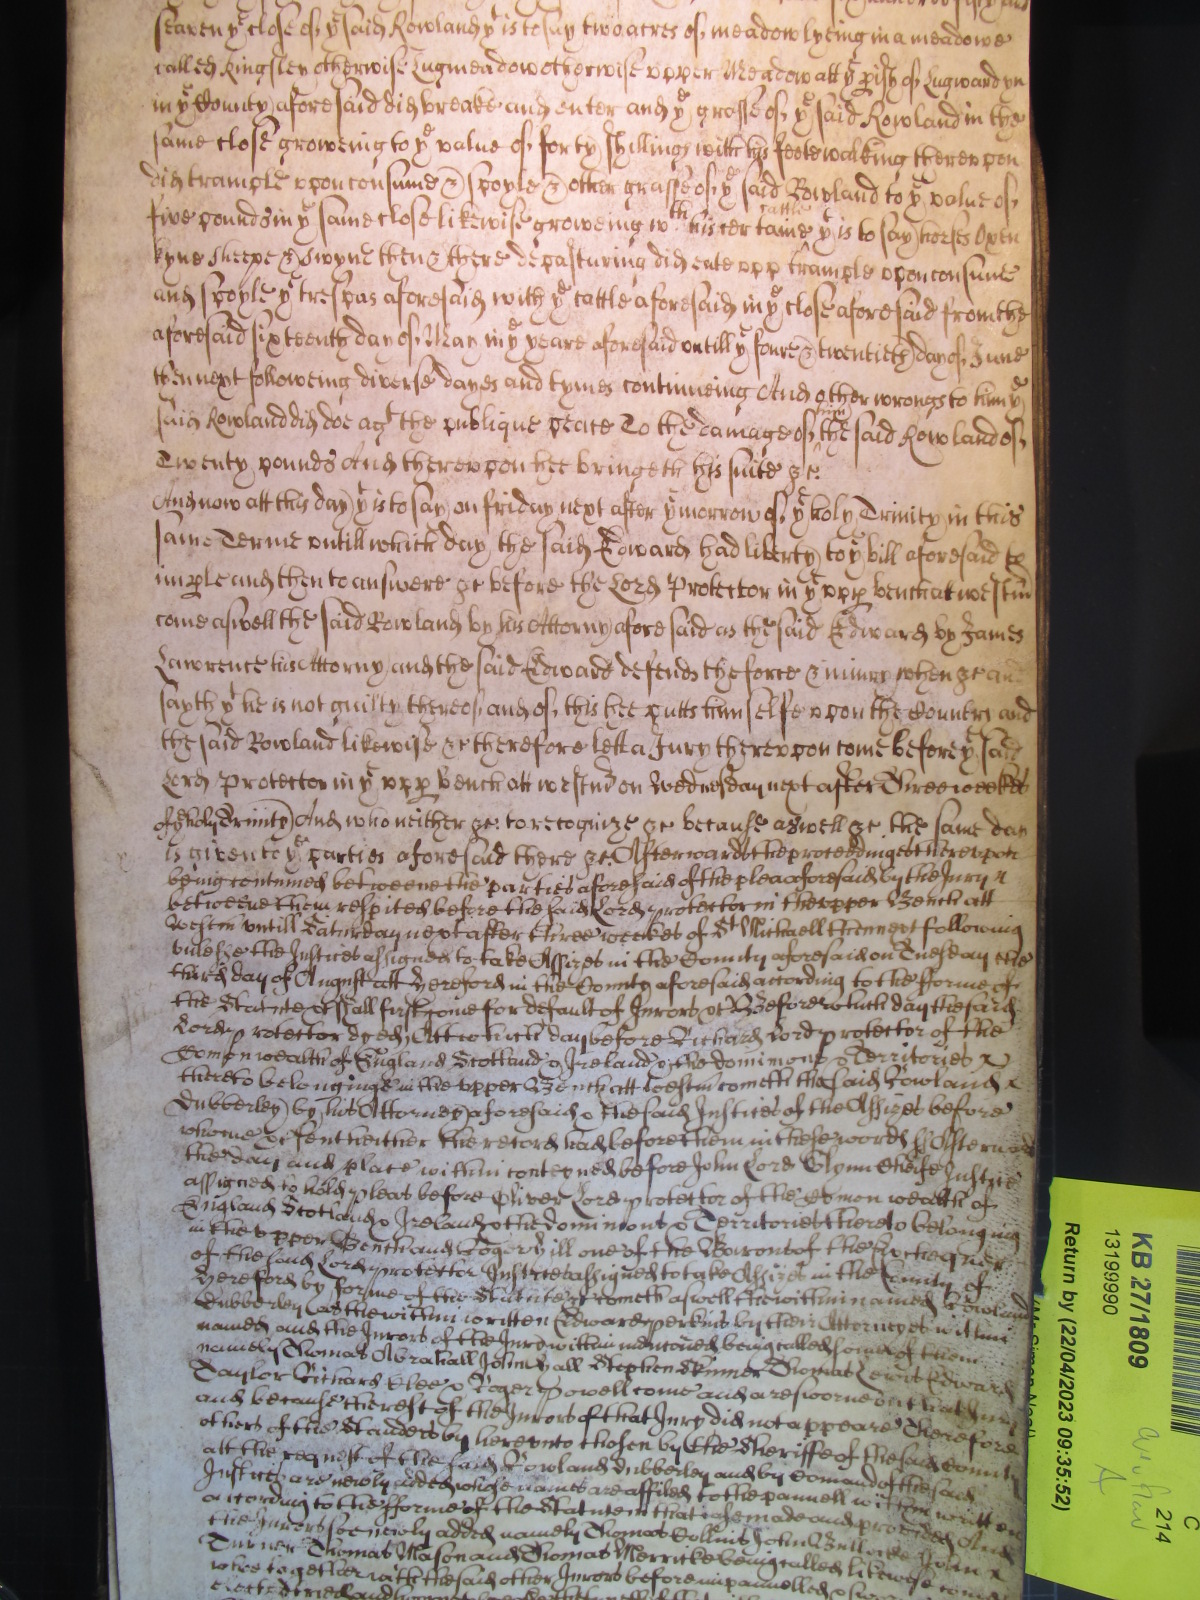 seaven ye close of ye said Rowland yt is to say two acres of meadow lyeing in a meadowe
called Kingsley otherwise Lugmeadow otherwise upper Meadow att ye pish of Lugwardyn
in ye County aforesaid did breake and enter and ye grasse of ye said Rowland in the
same close groweing to ye value of forty shillings with his feete walking thereupon
did trample upon consume & spoyle & other grasse of ye said Rowland to ye value of
five pounds in ye same close likewise groweing wth his certaine cattle yt is to say horses Oxen
kyne sheepe & swyne then & there depasturing did eate upp trample upon consume
and spoyle ye trespas aforesaid with ye cattle aforesaid in ye close aforesaid from the
aforesaid sixteenth day of May in ye yeare aforesaid untill ye foure & twentieth day of June
then next followeing diverse dayes and tymes continueing And other wrongs to him ye
said Rowland did doe agt the publique peace To the damage of him the said Rowland of
Twenty pounds And thereupon hee bringeth his suite &c.
And now att this day yt is to say on friday next after ye morrow of ye holy Trinity in this
same Terme untill which day the said Edward had liberty to ye bill aforesaid to
imple and then to answere &c before the Lord Protector in ye upp bench at westm
come aswell the said Rowland by his Attorny aforesaid as the said Edward by James
Lawrence his Attorny and the said Edward defends the force & iniury when &c and
sayth yt he is not guilty thereof and of this hee putts himselfe upon the Country and
the said Rowland likewise &c therefore lett a Jury thereupon come before ye said
Lord Protector in ye upp Bench att westm on Wednesday next after Three weekes
of ye holy Trinity And who neither &c. to recognize &c because aswell &c. the same day
is given to ye parties aforesaid there &c. Afterwards the proceedinges thereupon
being continued betweene the parties aforesaid of the plea aforesaid by the Jury
betweene them respited before the said Lord protector in the upper Bench att
Westm untill Saturday next after three weekes of St Michaell then next following
unlesse the Justices assigned to take Assizes in the County aforesaid on Tuesday the
third day of August att Hereford in the County aforesaid according to the fforme of
the Statute &c shall first come for default of Jurors &c Before which day the said
Lord protector dyed Att which day before Richard Lord protector of the
Comonwealth of England Scotland & Ireland & the dominions & Territories
thereto belonginge in the upper Bench att Westm cometh the said Rowland
Dubberley by his Attorney aforesaid & the said Justices of the Assizes before
whome &c sent heither the record had before them in these words ss Afterwards
the day and place within conteyned before John Lord Glynn Cheife Justice
assigned to hold pleas before Oliver Lord protector of the Comonwealth of
England Scotland & Ireland & the dominions & Territories thereto belonging
in the upper Bench and Roger Hill one of the Barons of the Exchequer
of the said Lord protector Justices assigned to take Assizes in the County of
Hereford by forme of the Statute &c cometh aswell the within named Rowland
Dubberley as the within written Edward perkins by their Attorneyes within
named and the Jurors of the Jury within mencioned being called some of them
namely Thomas Abrahall John Hall Stephen Skinner Thomas Lewis Edward
Taylor Richard Klee & Roger Powell come and are sworne on that Jury
and because the rest of the Jurors of that Jury did not appeare Therefore
others of the Standers by hereunto chosen by the Sheriffe of the said County
att the request of the said Rowland Dubberley and by Comand of the said
Justices are newly added whose names are affiled to the pannell within written
according to the fforme of the Statute in that case made and provided And
the Jurors soe newly added namely Thomas Collins John Bullocke John
Turner Thomas Mason and Thomas Merricke being called likewise come
who together with the said other Jurors before impannelled & sworne
elected tryed and
KB 27/1809
13199990
Return by (22/04/2023 09:35:52)
C
214
A